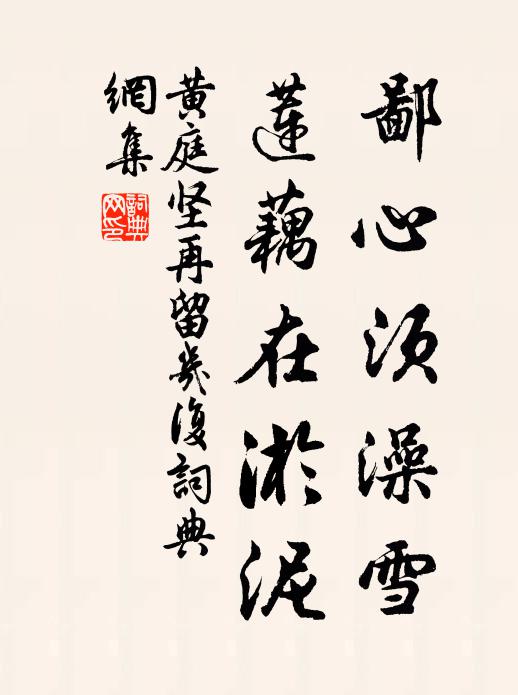 鄙心须澡雪
莲藕在淤泥
黄庭坚再留几復詞典
網集
詞典網印